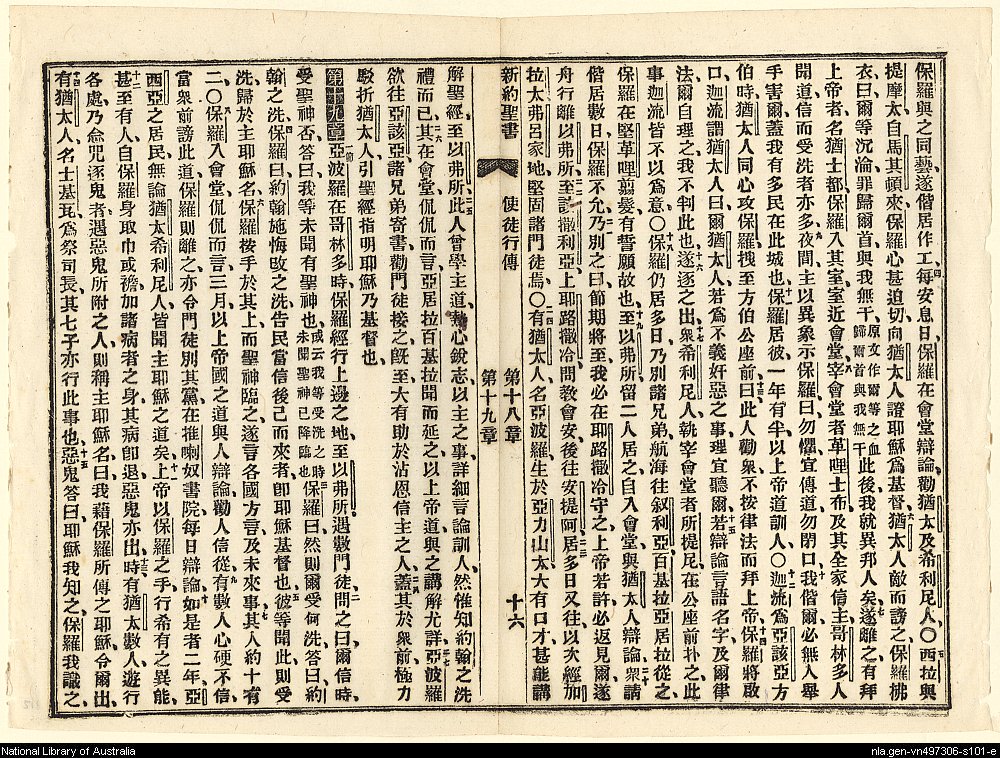 保羅與之同藝遂偕居作工每安息日保羅在會堂辯論勸猶太及希利尼人○西拉與
提摩太自馬其頓來保羅心甚迫切向猶太人證耶穌爲基督猶太人敵而謗之保羅拂
衣曰爾等沉淪罪歸爾首與我無干原文作爾等之血歸爾首與我無干此後我就異邦人矣遂離之有拜
上帝者名猶士都保羅入其室室近會堂宰會堂者革哩士布及其全家信主哥林多人
聞道信而受洗者亦多夜間主以異象示保羅曰勿懼宜傳道勿閉口我偕爾必無人舉
手害爾蓋我有多民在此城也保羅居彼一年有半以上帝道訓人○迦流爲亞該亞方
伯時猶太人同心攻保羅拽至方伯公座前曰此人勸衆不按律法而拜上帝保羅將啟
口迦流謂猶太人曰爾猶太人若爲不義奸惡之事理宜聽爾若辯論言語名字及爾律
法爾自理之我不判此也遂逐之出衆希利尼人執宰會堂者所提尼在公座前扑之此
事迦流皆不以爲意○保羅仍居多日乃別諸兄弟航海往叙利亞百基拉亞居拉從之
保羅在堅革哩翦髮有誓願故也至以弗所留二人居之自入會堂與猶太人辯論衆請
偕居數日保羅不允乃別之曰節期將至我必在耶路撒冷守之上帝若許必返見爾遂
舟行離以弗所至該撒利亞上耶路撒冷問教會安後往安提阿居多日又往以次經加
拉太弗呂家地堅固諸門徒焉○有猶太人名亞波羅生於亞力山太大有口才甚能講
新約聖書 使徒行傳 第十八章 第十九章 十六
解聖經至以弗所此人曾學主道熱心銳志以主之事詳細言論訓人然惟知約翰之洗
禮而已其在會堂侃侃而言亞居拉百基拉聞而延之以上帝道與之講解尤詳亞波羅
欲往亞該亞諸兄弟寄書勸門徒接之旣至大有助於沾恩信主之人蓋其於衆前極力
駁折猶太人引聖經指明耶穌乃基督也
第十九章一節亞波羅在哥林多時保羅經行上邊之地至以弗所遇數門徒問之曰爾信時
受聖神否答曰我等未聞有聖神也或云我等受洗之時未聞聖神已降臨也保羅曰然則爾受何洗答曰約
翰之洗保羅曰約翰施悔改之洗告民當信後己而來者卽耶穌基督也彼等聞此則受
洗歸於主耶穌名保羅按手於其上而聖神臨之遂言各國方言及未來事其人約十有
二○保羅入會堂侃侃而言三月以上帝國之道與人辯論勸人信從有數人心硬不信
當衆前謗此道保羅則離之亦令門徒別其黨在推喇奴書院每日辯論如是者二年亞
西亞之居民無論猶太希利尼人皆聞主耶穌之道矣上帝以保羅之手行希有之異能
甚至有人自保羅身取巾或襜加諸病者之身其病卽退惡鬼亦出時有猶太數人遊行
各處乃念咒逐鬼者遇惡鬼所附之人則稱主耶穌名曰我藉保羅所傳之耶穌令爾出
有猶太人名士基瓦爲祭司長其七子亦行此事也惡鬼答曰耶穌我知之保羅我識之
National Library of Australia
nla.gen-vn497306-s101-e